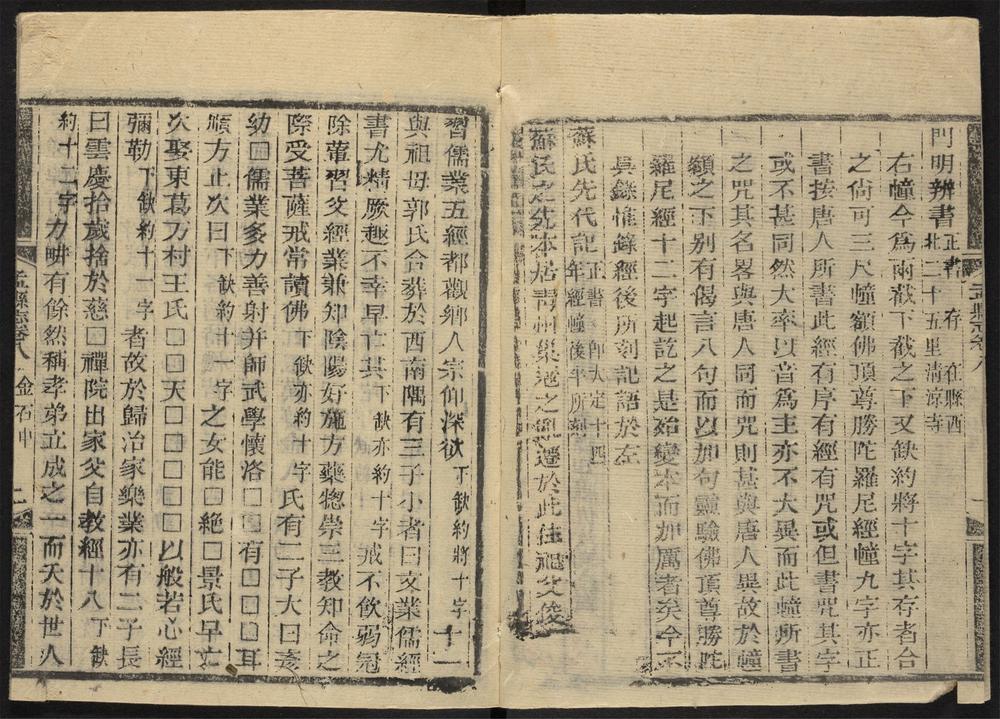 門明辨書正書 存 在縣西北二十五里清涼寺
右幢今爲兩截下截之下又缺約將十字其存者合
之尚可三尺幢額佛頂尊勝陀羅尼經幢九字亦正
書按唐人所書此經有序有經有咒或但書咒其字
或不甚同然大率以音爲主亦不大異而此幢所書
之咒其名畧與唐人同而咒則甚與唐人異故於幢
額之下别有偈言八句而以加句靈驗佛頂尊勝陀
羅尼經十二字起訖之是殆變本而加厲者矣今不
具錄惟錄經後所刻記語於左
蘇氏先代記正書 卽大定十四年經幢後半所刻
蘇氏之先本居青州巢之亂遷於此住祖父俊
習儒業五經都觀鄉人宗仰深欲下缺約將十字
與祖母郭氏合葬於西南隅有三子小者曰文業儒經
書尤精厥趣不幸早亡其下缺亦約十字戒不飲弱冠
除葷習父經業兼知陰陽好施方藥惣崇三教知命之
際受菩薩戒常讀佛下缺亦約十字氏有二子大曰
幼□儒業多力善射并師武學懷洛□□有□□□耳
順方止次曰下缺約十一字之女能□絶□景氏早亡
次娶東葛万村王氏□□□天□□□□□以般若心經
彌勒下缺約十一字者故於歸冶家樂業亦有二子長
曰雲慶拾歲捨於慈□禪院出家父自教經十八下缺
約十二字力畊有餘然稱孝弟立成之一而夭於世人
孟縣志卷八 金石中